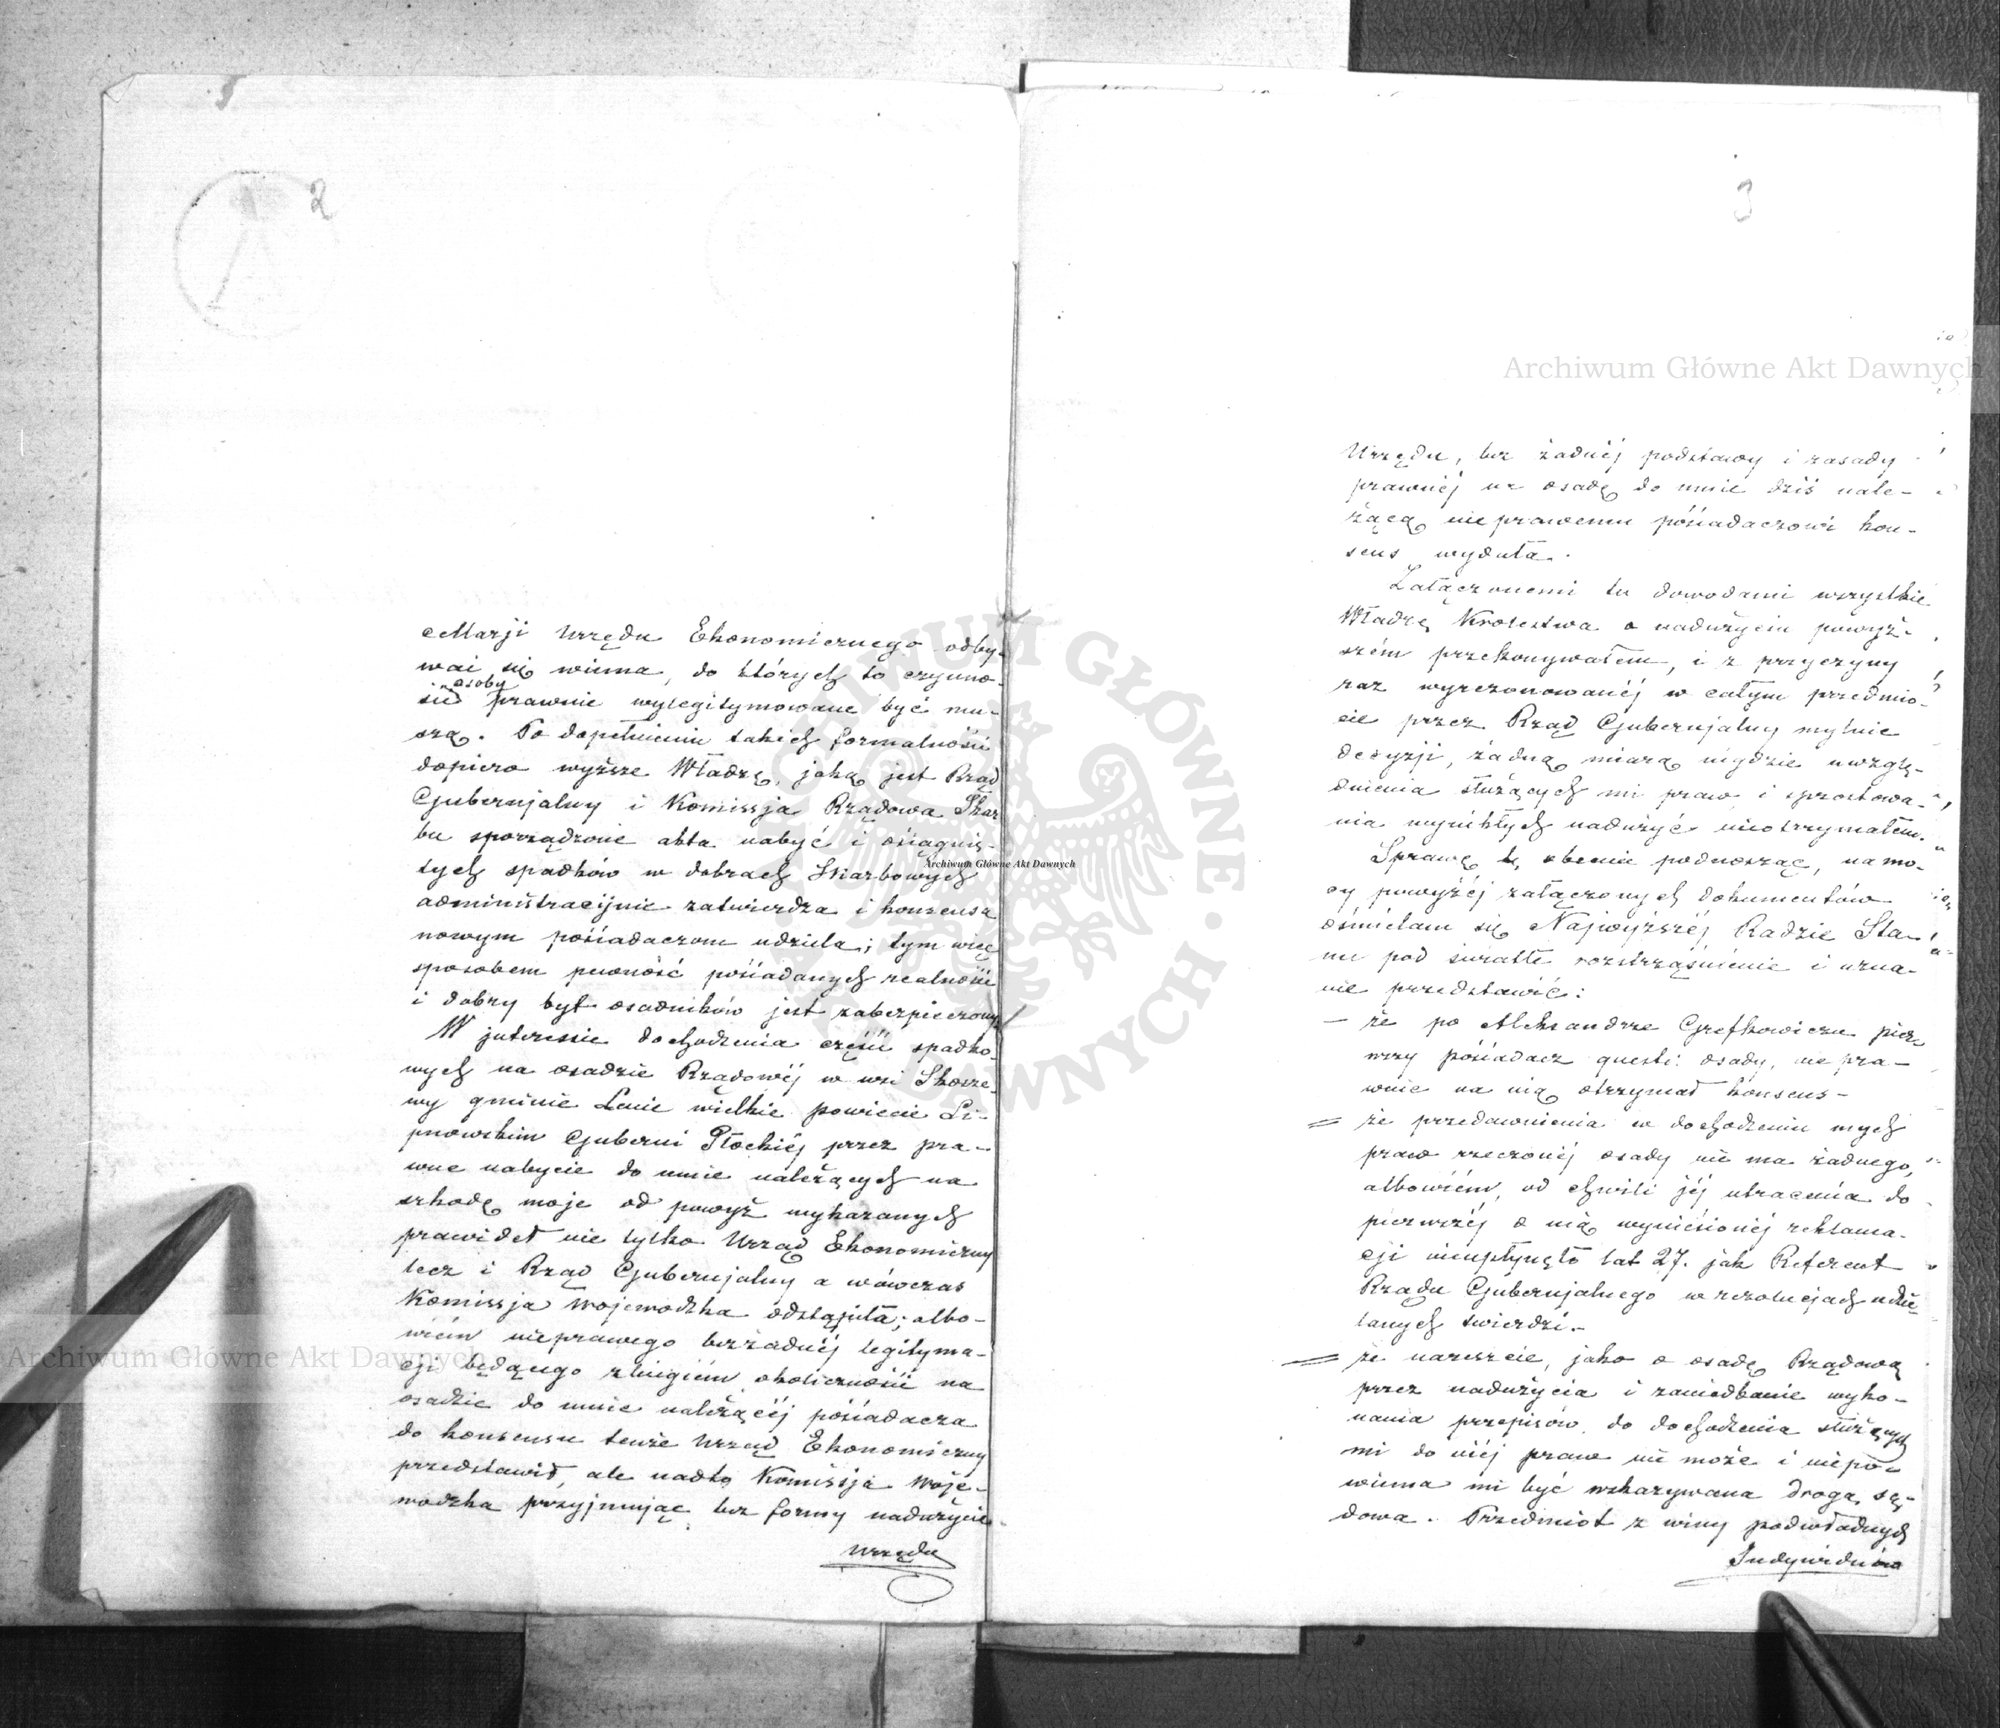 2
cellarji Urzędu Ekonomicznego odby-
wać się winna, do których to czynno-
osoby
ści prawnie wylegitymowane być mu-
szą. Po dopełnieniu takich formalności
dopiero wyższe Władzę, jaką jest Rząd
Gubernjalny i Komissja Rządowa Skar
bu sporządzone akta nabyć i osiągnię-
tych spadków w dobrach Skarbowych
administracijnie zatwierdza i konsensa
nowym posiadaczom udziela; tym więc
sposobem pewność posiadanych realności
i dobry byt osadników jest zabezpieczony
W interessie dochodzenia części spadko-
wych na osadzie Rządowéj w wsi Skorze-
wy gminie Lenie wielkie powiecie Li-
pnowskim Gubernii Płockiéj przez pra-
wne nabycie do mnie należących na
szkodę moje od powyż wykazanych
prawideł nie tylko Urząd Ekonomiczny
lecz i Rząd Gubernjalny a wówczas
Komissja Wojewodzka odstąpiła; albo-
wiém nieprawego bezżadnéj legityma-
cji będącego zbiegiém okoliczności na
osadzie do mnie należącéj posiadacza
do konsensu tenże Urząd Ekonomiczny
przedstawił, ale nadto Komissja Woje-
wodzka przyjmując bez formy nadużycie
Urzędu
3
Urzędu, bez żadnéj podstawy i zasady
prawnéj na osadę do mnie dziś nale-
żącą nieprawemu posiadaczowi kon-
sens wydała.
Załączonemi tu dowodami wszystkie
Władzę Krolestwa o nadużyciu powyż-
szém przekonywałem, i z przyczyny
raz wyrezonowanéj w całym przedmio-
cie przez Rząd Gubernjalny mylnie
decyzji, żadną miarą nigdzie uwzglę-
dnienia służących mi praw i sprostowa-
nia wynikłych nadużyć nieotrzymałem.
Sprawę tę obecnie podnosząc, na mo-
cy powyżéj załączonych dokumentów
ośmielam się Najwyższéj Radzie Sta-
nu pod światłe rozstrząśnienie i uzna-
nie przedstawić:
— że po Aleksandrze Grefkowiczu pier-
wszy posiadacz quest: osady, nie pra-
wnie na nią otrzymał konsens-
= że przedawnienia w dochodzeniu mych
praw rzeczonéj osady nie ma żadnego,
albowiém, od chwili jéj utracenia do
pierwszéj o nią wyniesionéj reklama-
cji nieupłynęło lat 27. jak Referent
Rządu Gubernjalnego w rezolucjach udzie
lanych twierdzi.-
= że nareszcie, jako o osadę Rządową
przez nadużycia i zaniedbanie wyko-
nania przepisów, do dochodzenia służących
mi do niéj praw nie może i niepo-
winna mi być wskazywana droga są-
dowa. Przedmiot z winy podwładnych
Indywiduów
Archiwum Główne Akt Dawnych
Archiwum Główne Akt Dawnych
Archiwum Główne Akt Dawnych
ARCHIWUM GŁÓWNE · AKT DAWNYCH ·